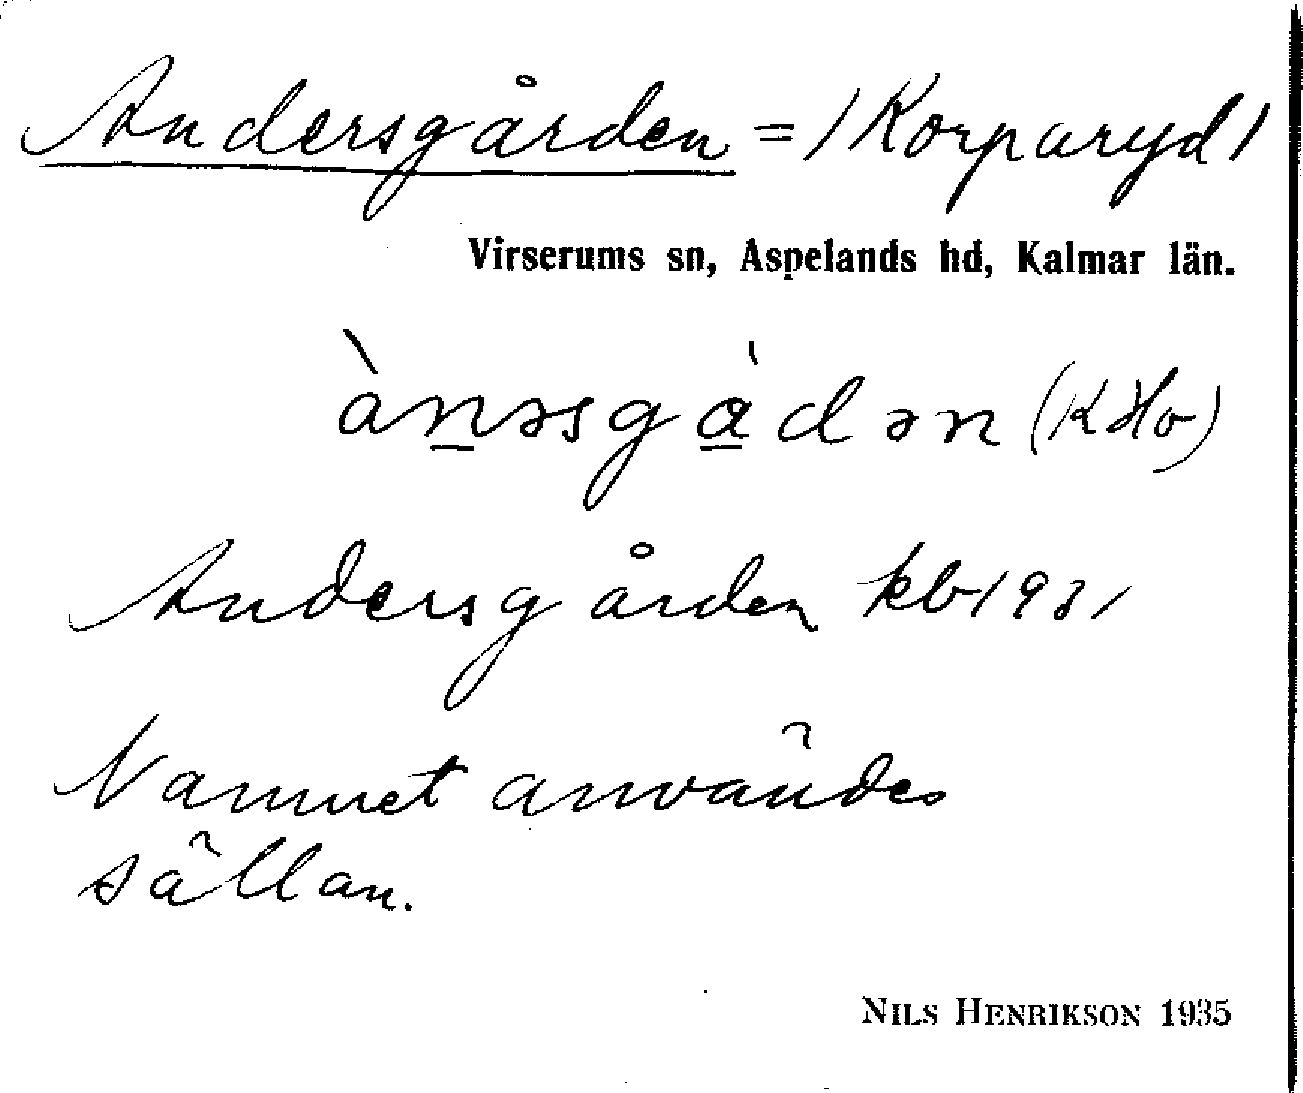 Andersgården = /Korparyd/
Virserums sn, Aspelands hd, Kalmar län.
àn̲əsgà̲dən (KHo)
Andersgården kb 1931
Namnet användes
sällan.
NILS HENRIKSON 1935